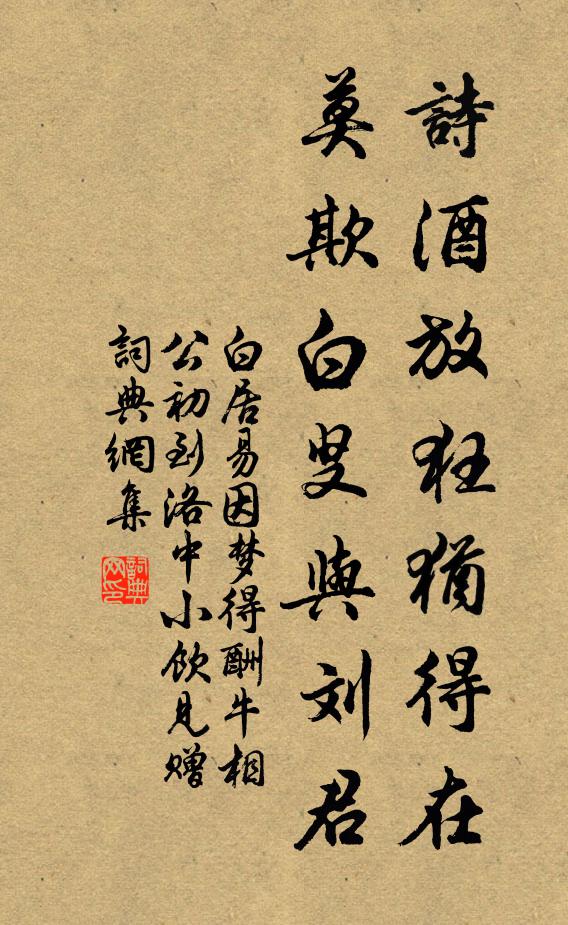 詩酒放狂猶得在
莫欺白叟與刘君
白居易因梦得酬牛相
公初到洛中小飲見赠
詞典網集
詞典
网印